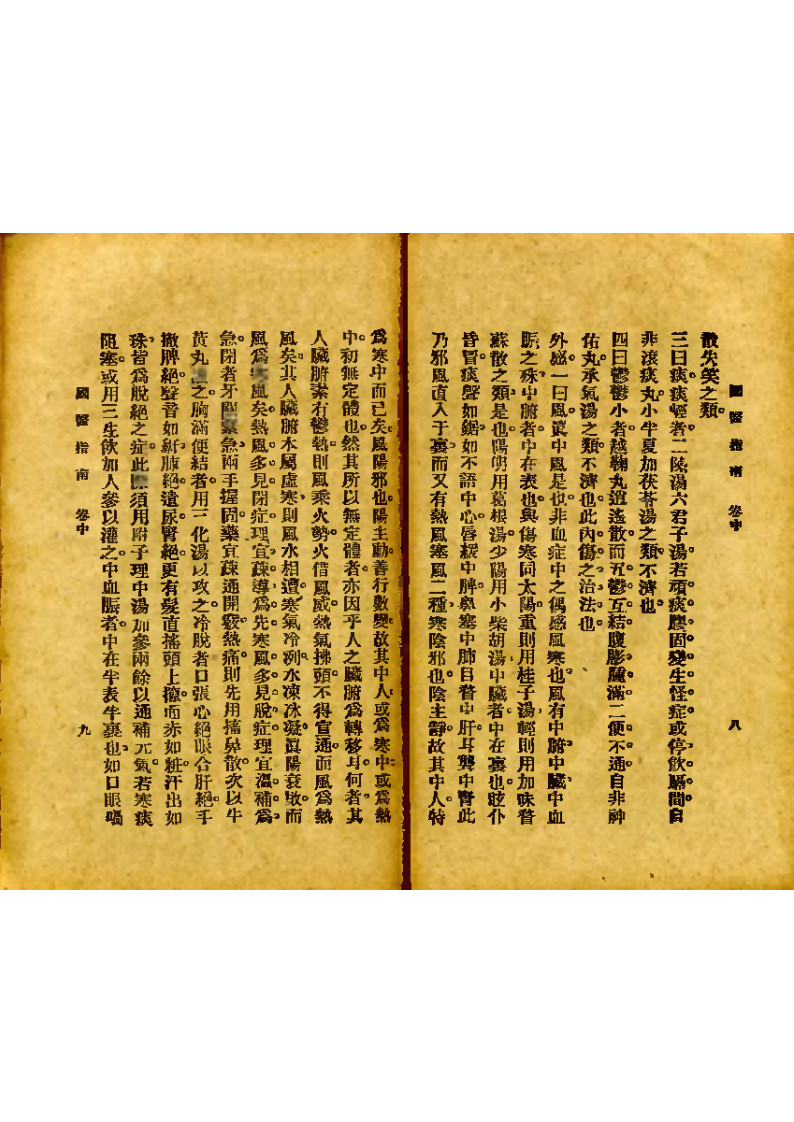 國醫指南 卷中
八
散失笑之類。
三曰痰。痰輕者。二陳湯六君子湯。若頑痰膠固。變生怪症。或停飲膈間。自
非滾痰丸小半夏加茯苓湯之類。不濟也。
四曰鬱。鬱小者。越鞠丸逍遙散。而五鬱互結。腹膨腫滿。二便不通。自非神
佑丸承氣湯之類不濟也。此內傷之治法也。
外感一曰風。眞中風是也。非血症中之偶感風寒也。風有中腑中臟中血
脈之殊。中腑者。中在表也。與傷寒同太陽。重則用桂子湯。輕則用加味香
蘇散之類是也。陽明用葛根湯。少陽用小柴胡湯。中臟者。中在裏也。眩仆
昏冒。痰聲如鋸。如不語中心。唇緩中脾。鼻塞中肺。目瞀中肝。耳聾中腎。此
乃邪風直入于裏。而又有熱風寒風二種。寒陰邪也。陰主靜。故其中人。特
爲寒中而已矣。風陽邪也。陽主動。善行數變。故其中人。或爲寒中。或爲熱
中。初無定體也。然其所以無定體者。亦因乎人之臟腑爲轉移耳。何者。其
人臟腑素有鬱熱。則風乘火勢。火借風威。熱氣拂頭。不得宣通。而風爲熱
風矣。其人臟腑本屬虛寒。則風水相遭。寒氣冷冽。水凍冰凝。眞陽衰敗。而
風爲寒風矣。熱風多見閉症。理宜疎導爲先。寒風多見脫症。理宜溫補爲
急。閉者牙關緊急。兩手握固。藥宜疎通開竅。熱痛則先用搐鼻散。次以牛
黃丸 之。胸滿便結者。用三化湯以攻之。冷脫者口張心絕。眼合肝絕。手
撒脾絕。聲音如鼾肺絕。遺尿腎絕。更有髮直搖頭上攛。面赤如粧。汗出如
珠。皆爲脫絕之症。此 須用附子理中湯加參兩餘。以通補元氣。若寒痰
阻塞。或用三生飲加人參以灌之。中血脈者。中在半表半裏也。如口眼喎
國醫指南 卷中
九